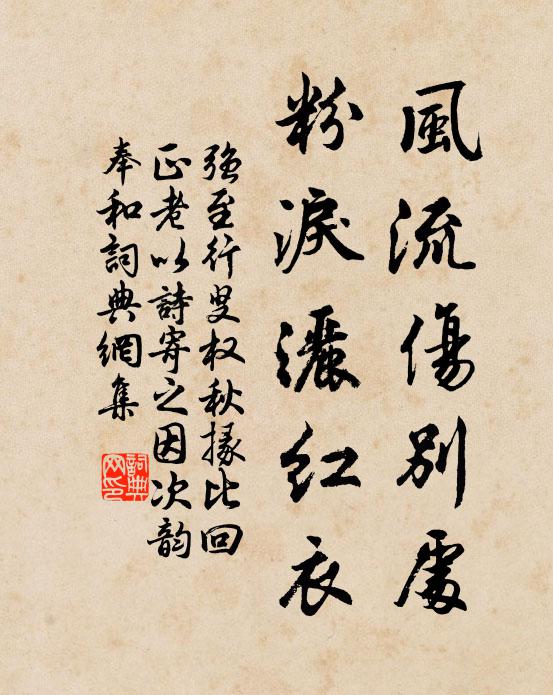 風流傷別處
粉淚灑紅衣
強至行叟权秋掾比回
正老以詩寄之因次韵
奉和詞典網集
詞典
网印